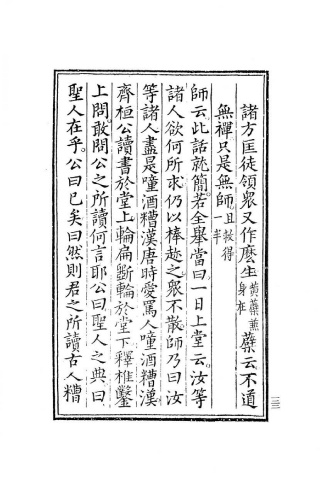 諸方匡徒領衆又作麽生黄蘗兼身在蘗云不道
無禪只是無師且救得一半
師云此話就簡若全舉當曰一日上堂云汝等
諸人欲何所求仍以棒趂之衆不散師乃曰汝
等諸人盡是噇酒糟漢唐時愛罵人噇酒糟漢
齊桓公讀書於堂上輪扁斲輪於堂下釋椎鑿
上問敢問公之所讀何言耶公曰聖人之典曰
聖人在乎公曰已矣曰然則君之所讀古人糟